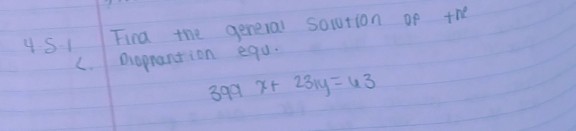 4 S 1 Find the general solution of the
c. Diophantion equ.
399 x + 231y = 43